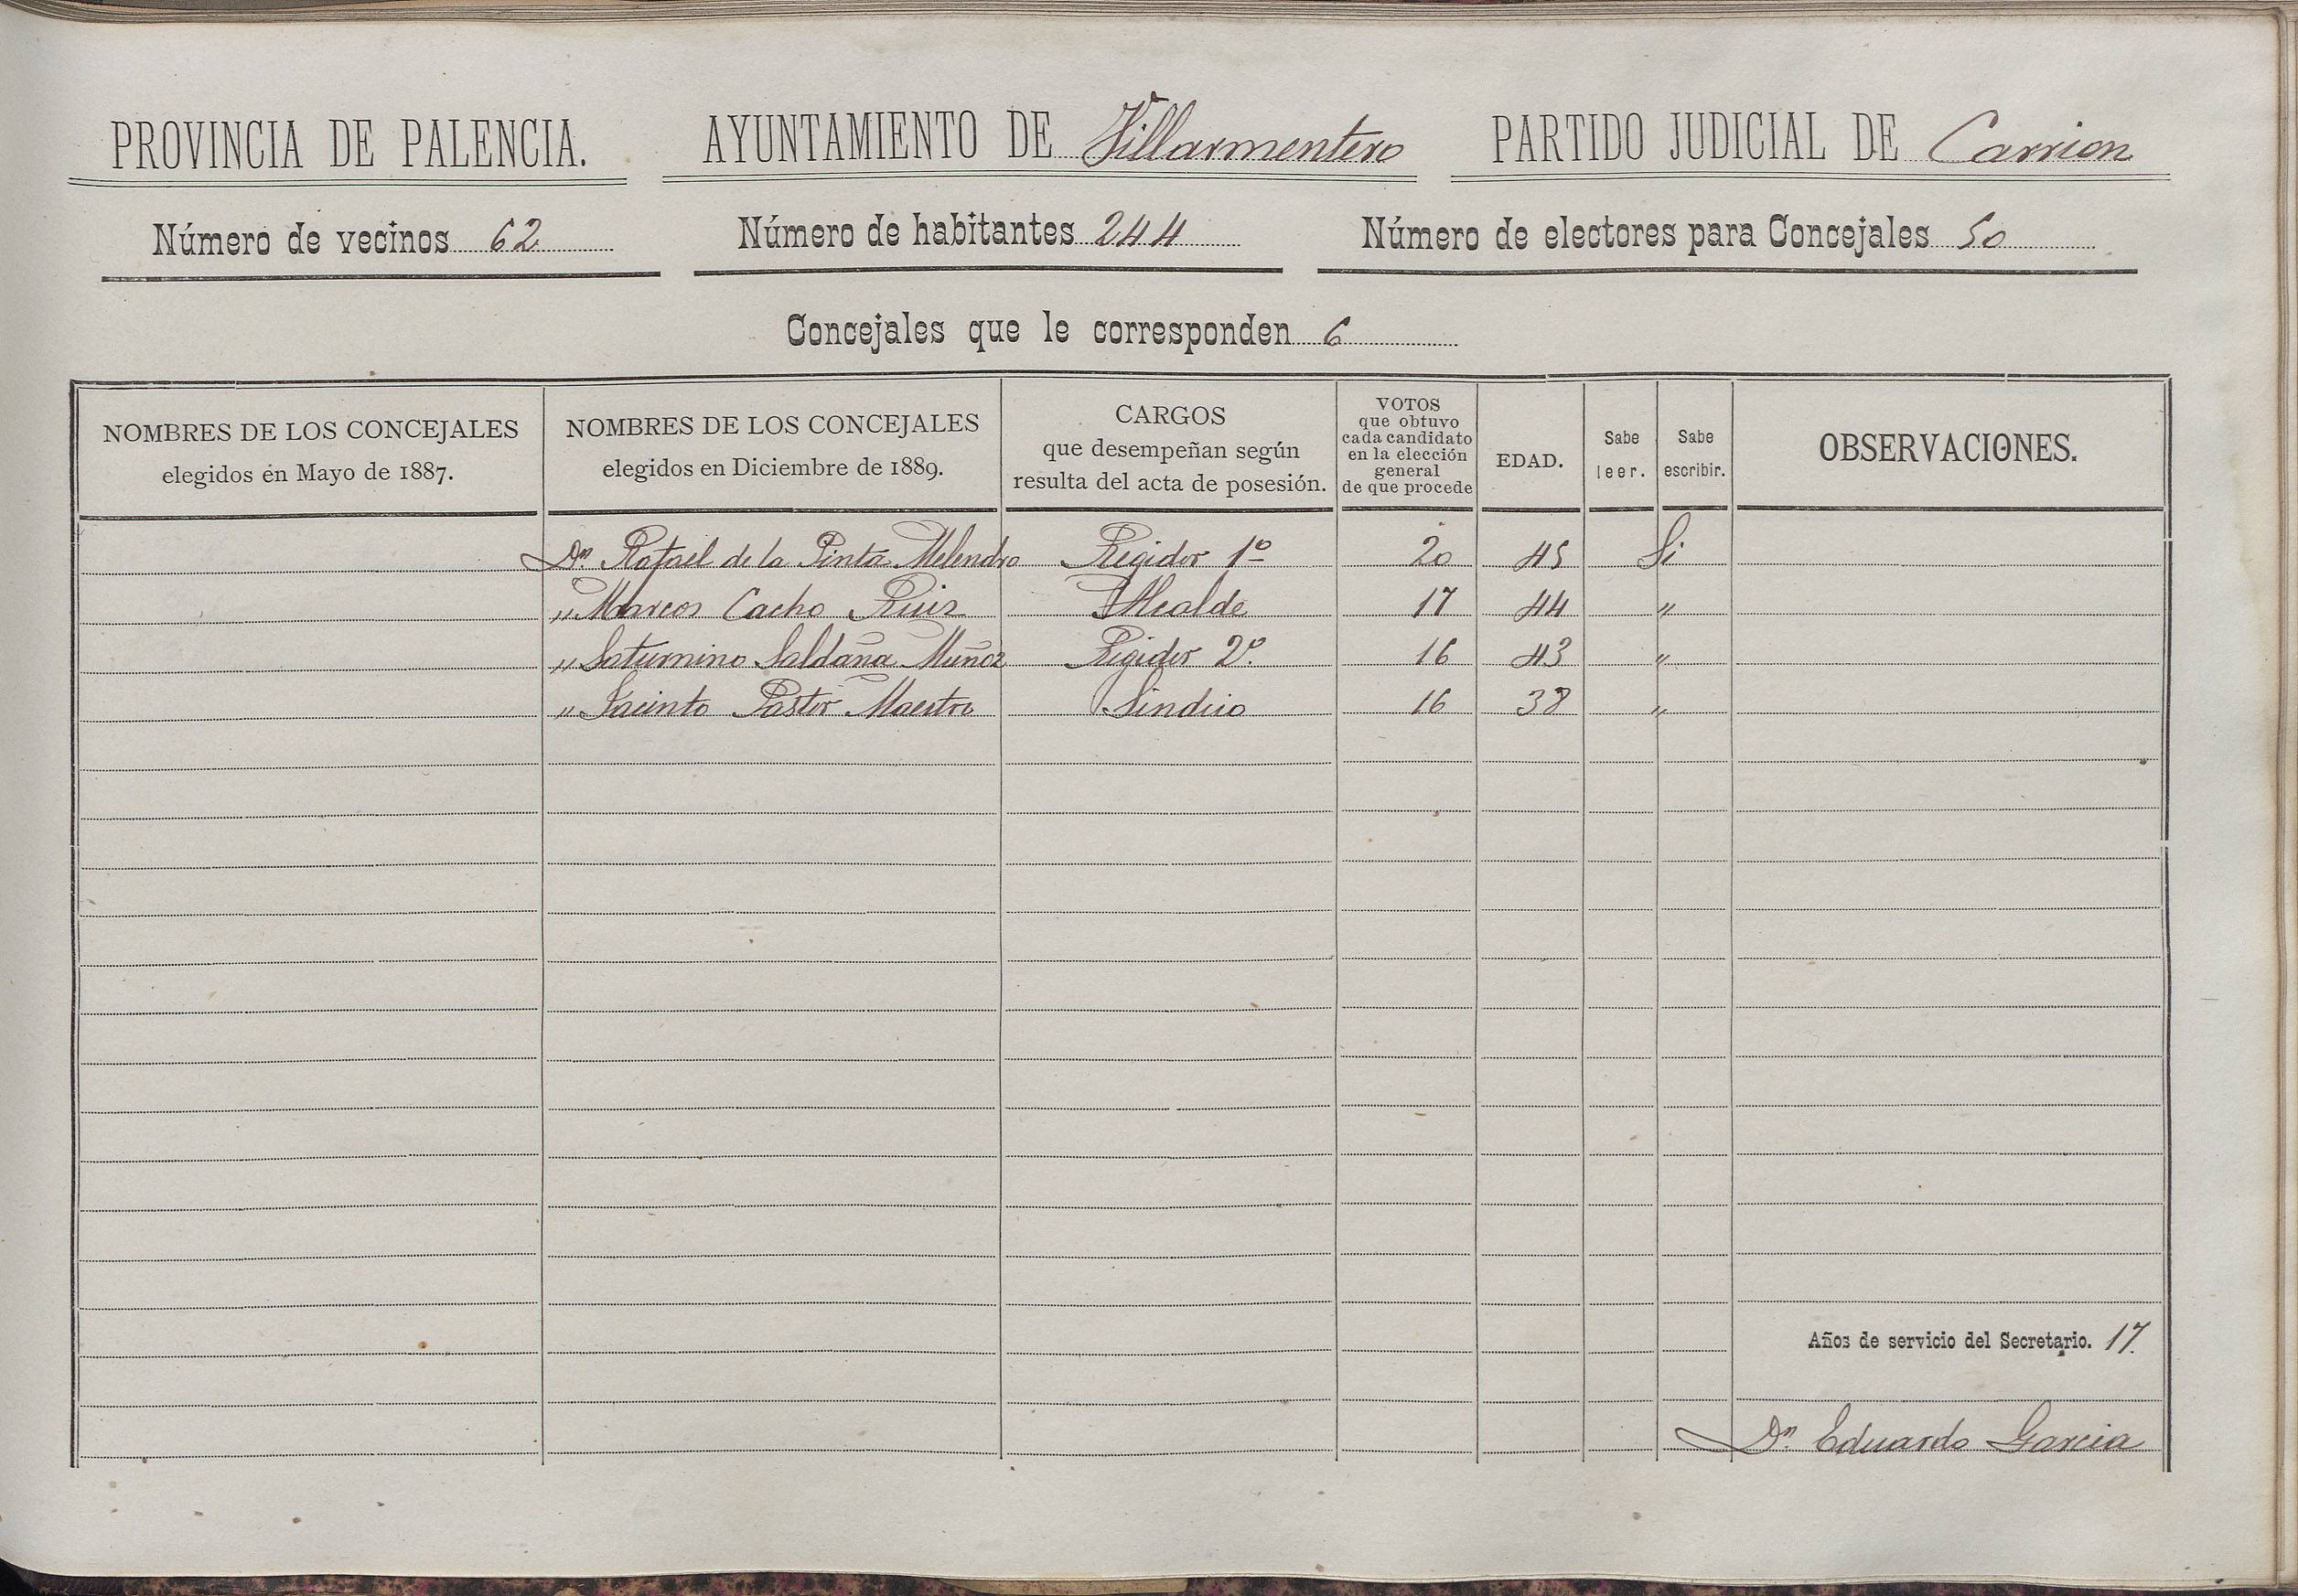 PROVINCIA DE PALENCIA. AYUNTAMIENTO DE Villarmentero PARTIDO JUDICIAL DE Carrion
Número de vecinos 62 Número de habitantes 244 Número de electores para Concejales 50
Concejales que le corresponden 6
NOMBRES DE LOS CONCEJALES
elegidos en Mayo de 1887.
NOMBRES DE LOS CONCEJALES
elegidos en Diciembre de 1889.
CARGOS
que desempeñan según
resulta del acta de posesión.
VOTOS
que obtuvo
cada candidato
en la elección
general
de que procede
EDAD.
Sabe
leer.
Sabe
escribir.
OBSERVACIONES.
Dn. Rafael de la Pinta Melendro Regidor 1º 20 45 Si
" Marcos Cacho Ruiz Alcalde 17 44 "
" Saturnino Saldaña Muñoz Regidor 2º. 16 43 "
" Jacinto Pastor Maestro Sindico 16 38 "
Años de servicio del Secretario. 17.
Dn. Eduardo Garcia